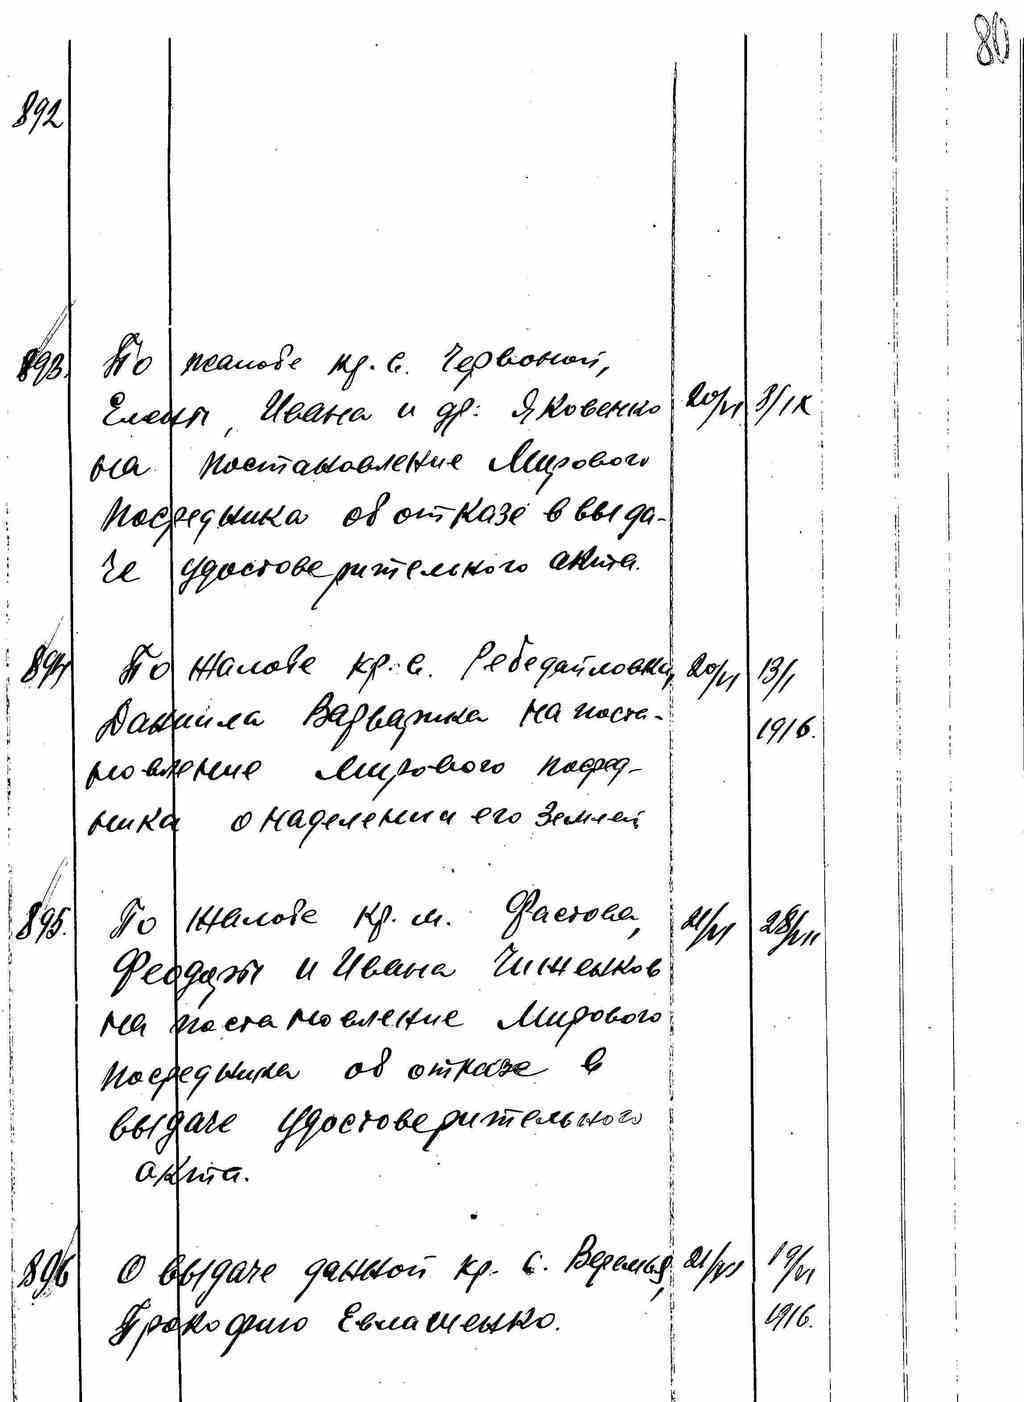 80
892
893. По жалобе кр. с. Червоной,
Елены, Ивана и др: Яковенко 20/VI 3/IX
на постановление Мирового
Посредника об отказе в выда-
че удостоверительного акта.
894 По жалобе кр. с. Ребедайловки, 20/VI 13/I
Даниила Варважка на поста- 1916.
новление Мирового посред-
ника о наделении его землей
895. По жалобе кр. м. Фастова, 21/VI 28/VII
Феодоры и Ивана Чиженков
на постановление Мирового
посредника об отказе в
выдаче удостоверительного
акта.
896 О выдаче данной кр. с. Веремья, 21/VI 19/VI
Прокофию Евлашенко. 1916.